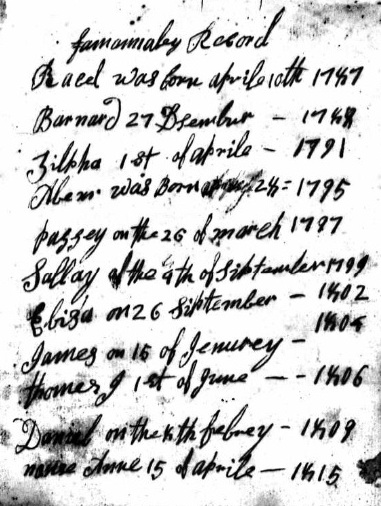 famamaley Record
Racel was born aprile 10th 1787
Barnard 27 Dsember - 1788
Zilpha 1 st of aprile - 1791
Abenr was Born 28 = 1795
passey on the 26 of march 1797
Sallay of the 4th of September 1799
Ebiga on 26 September - 1802
James on 15 of Jenurey - 1804
thomes J 1 st of June - - 1806
Daniel on the th febrey - 1809
Anne 15 of aprile - 1815